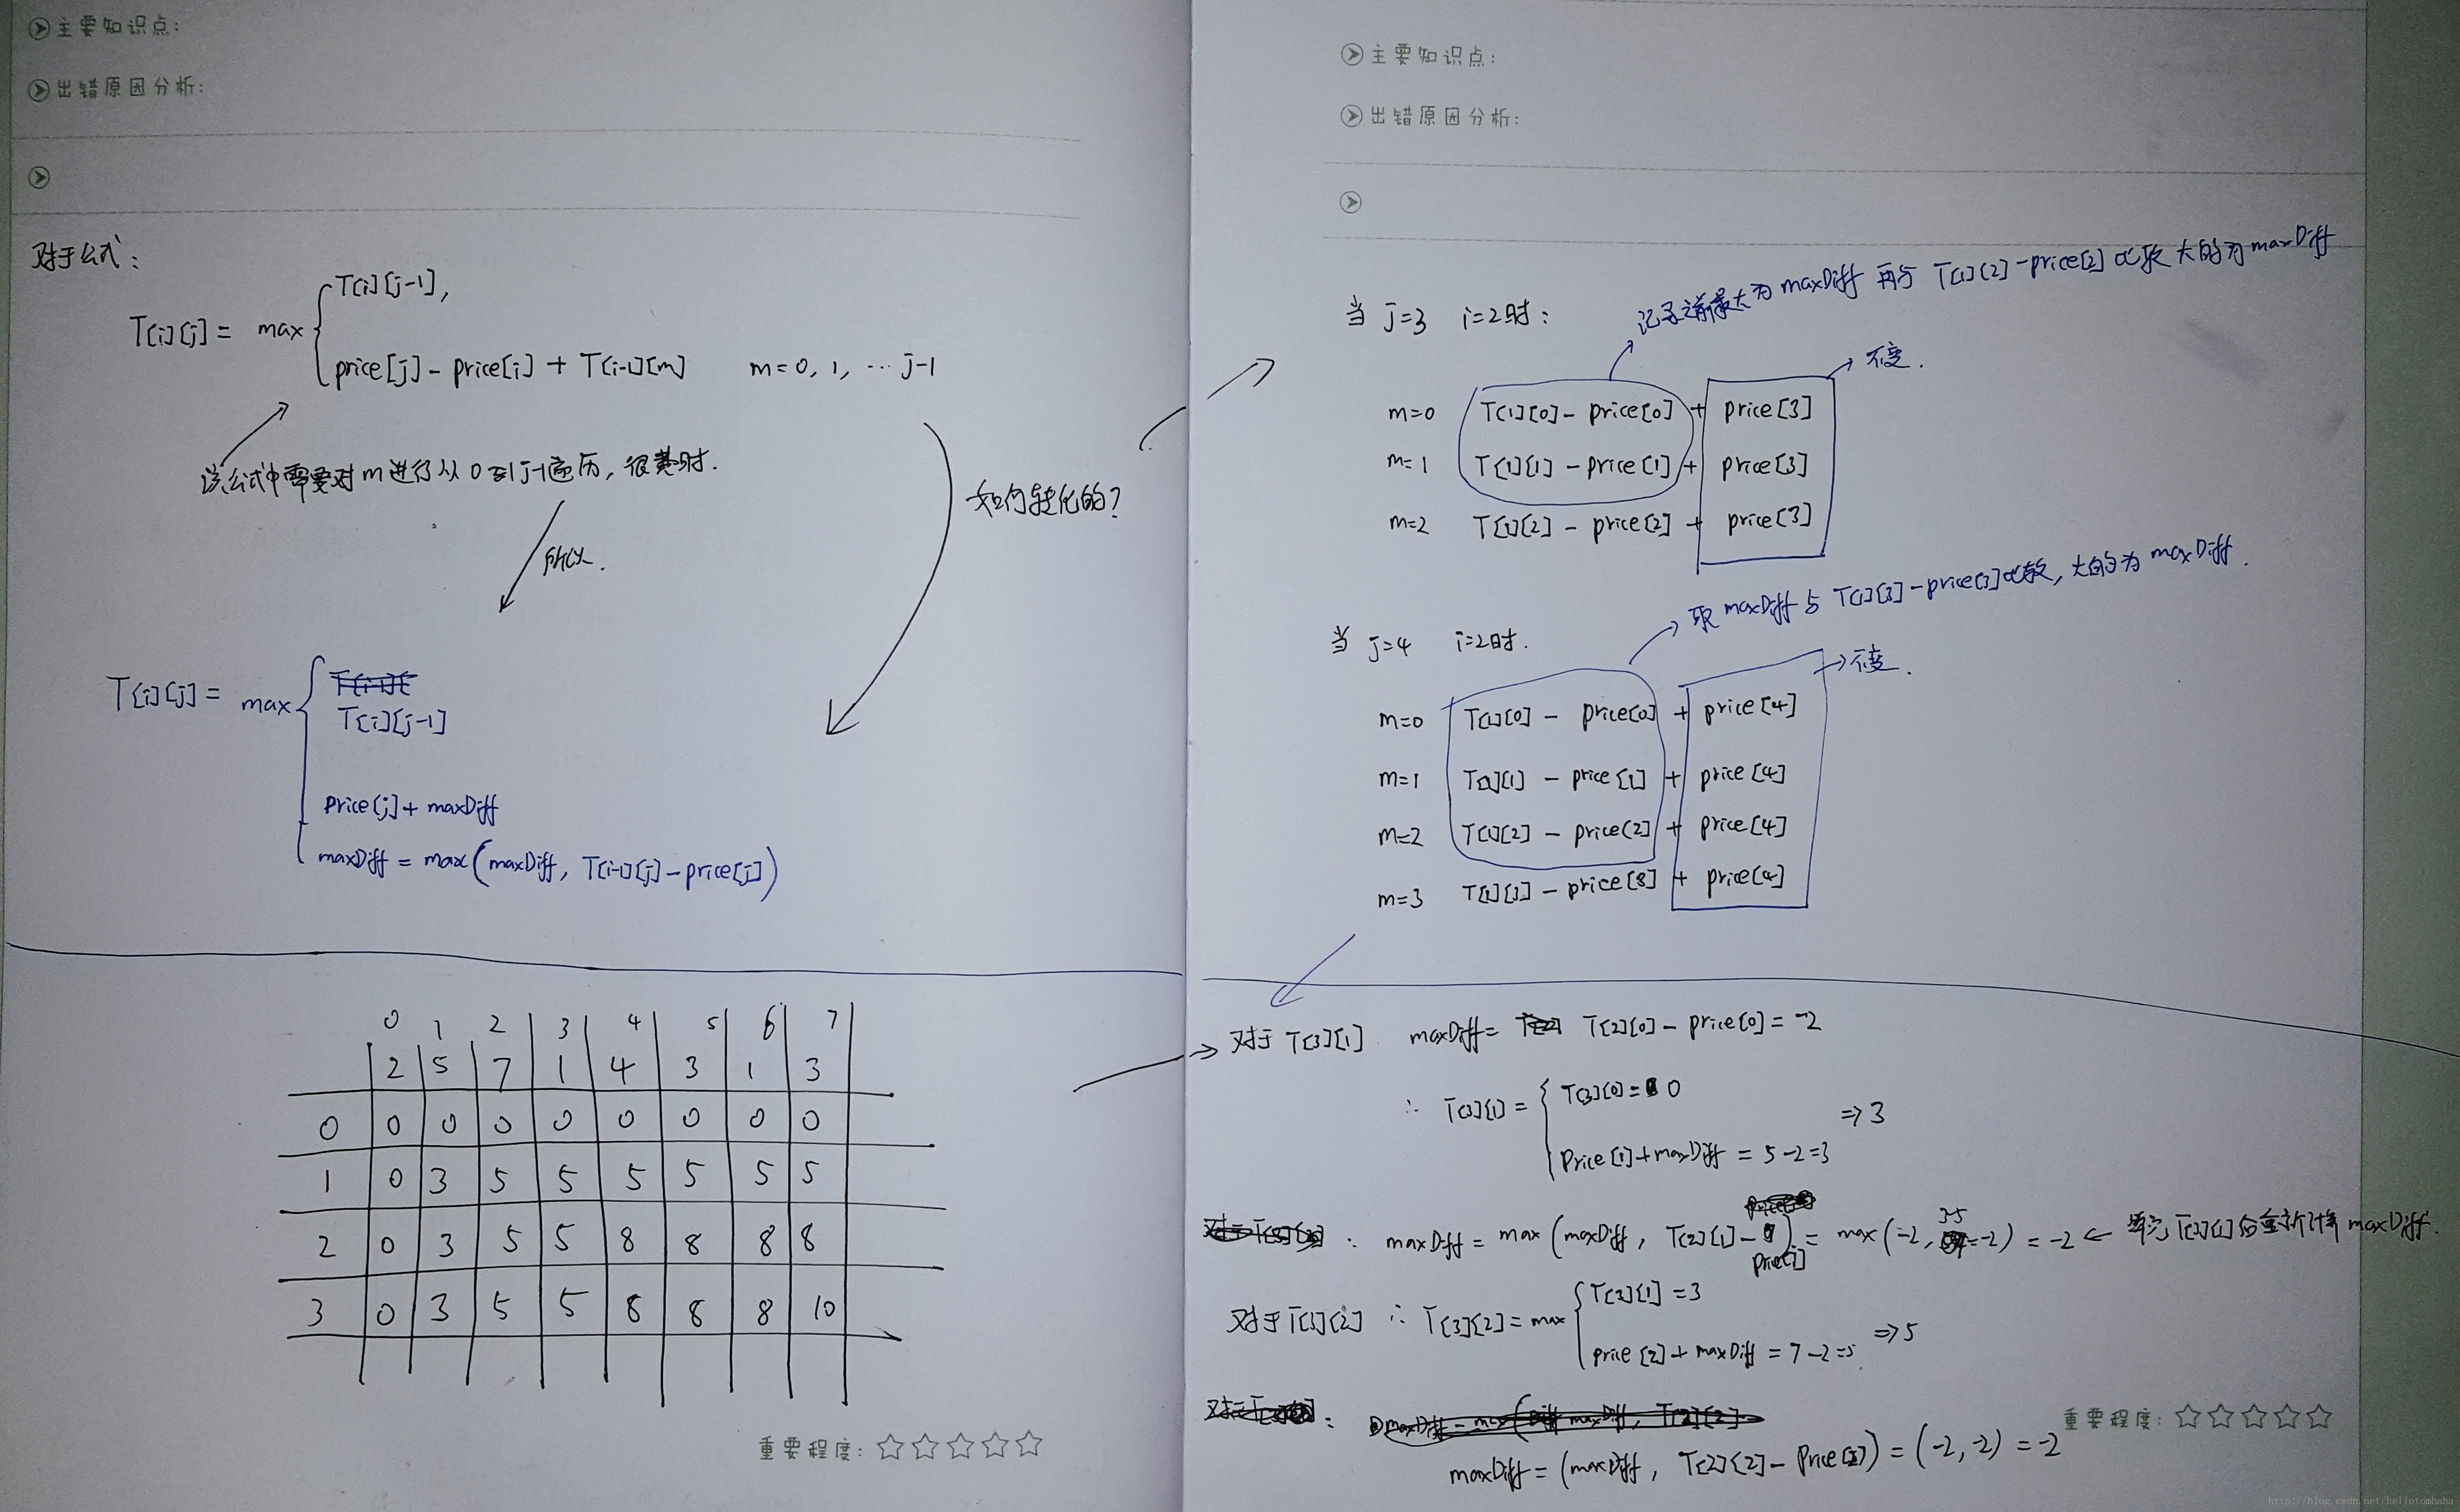 主要知识点:
出错原因分析:
对于公式:
T[i][j] = max
T[i][j-1],
price[j] - price[i] + T[i-1][m] m=0, 1, … j-1
该公式中需要对m进行从0到j-1遍历, 很费时.
所以.
如何转化的?
T[i][j] = max
T[i][j-1]
price[j] + maxDiff
maxDiff = max(maxDiff, T[i-1][j] - price[j])
0 1 2 3 4 5 6 7
2 5 7 1 4 3 1 3
0 0 0 0 0 0 0 0 0
1 0 3 5 5 5 5 5 5
2 0 3 5 5 8 8 8 8
3 0 3 5 5 8 8 8 10
重要程度:
主要知识点:
出错原因分析:
记录之前最大为maxDiff 再与 T[1][2]-price[2] 比较 大的为maxDiff
当 j=3 i=2时:
不变.
m=0 T[1][0] - price[0] + price[3]
m=1 T[1][1] - price[1] + price[3]
m=2 T[1][2] - price[2] + price[3]
取maxDiff 与 T[1][3]-price[3]比较, 大的为 maxDiff.
当 j=4 i=2时.
不变.
m=0 T[1][0] - price[0] + price[4]
m=1 T[1][1] - price[1] + price[4]
m=2 T[1][2] - price[2] + price[4]
m=3 T[1][3] - price[3] + price[4]
对于 T[3][1] maxDiff = T[2][0] - price[0] = -2
∴ T[3][1] =
T[3][0] = 0
Price[1] + maxDiff = 5-2=3
⇒ 3
: maxDiff = max (maxDiff, T[2][1] - price[1]) = max (-2, 3-5=-2) = -2 ← 算完T[3][1]后重新计算maxDiff.
对于T[3][2] ∴ T[3][2] = max
T[3][1] = 3
price[2] + maxDiff = 7-2=5.
⇒ 5
: maxDiff = (maxDiff, T[2][2] - Price[2]) = (-2, -2) = -2
重要程度:
http://blog.csdn.net/hellotomhaha